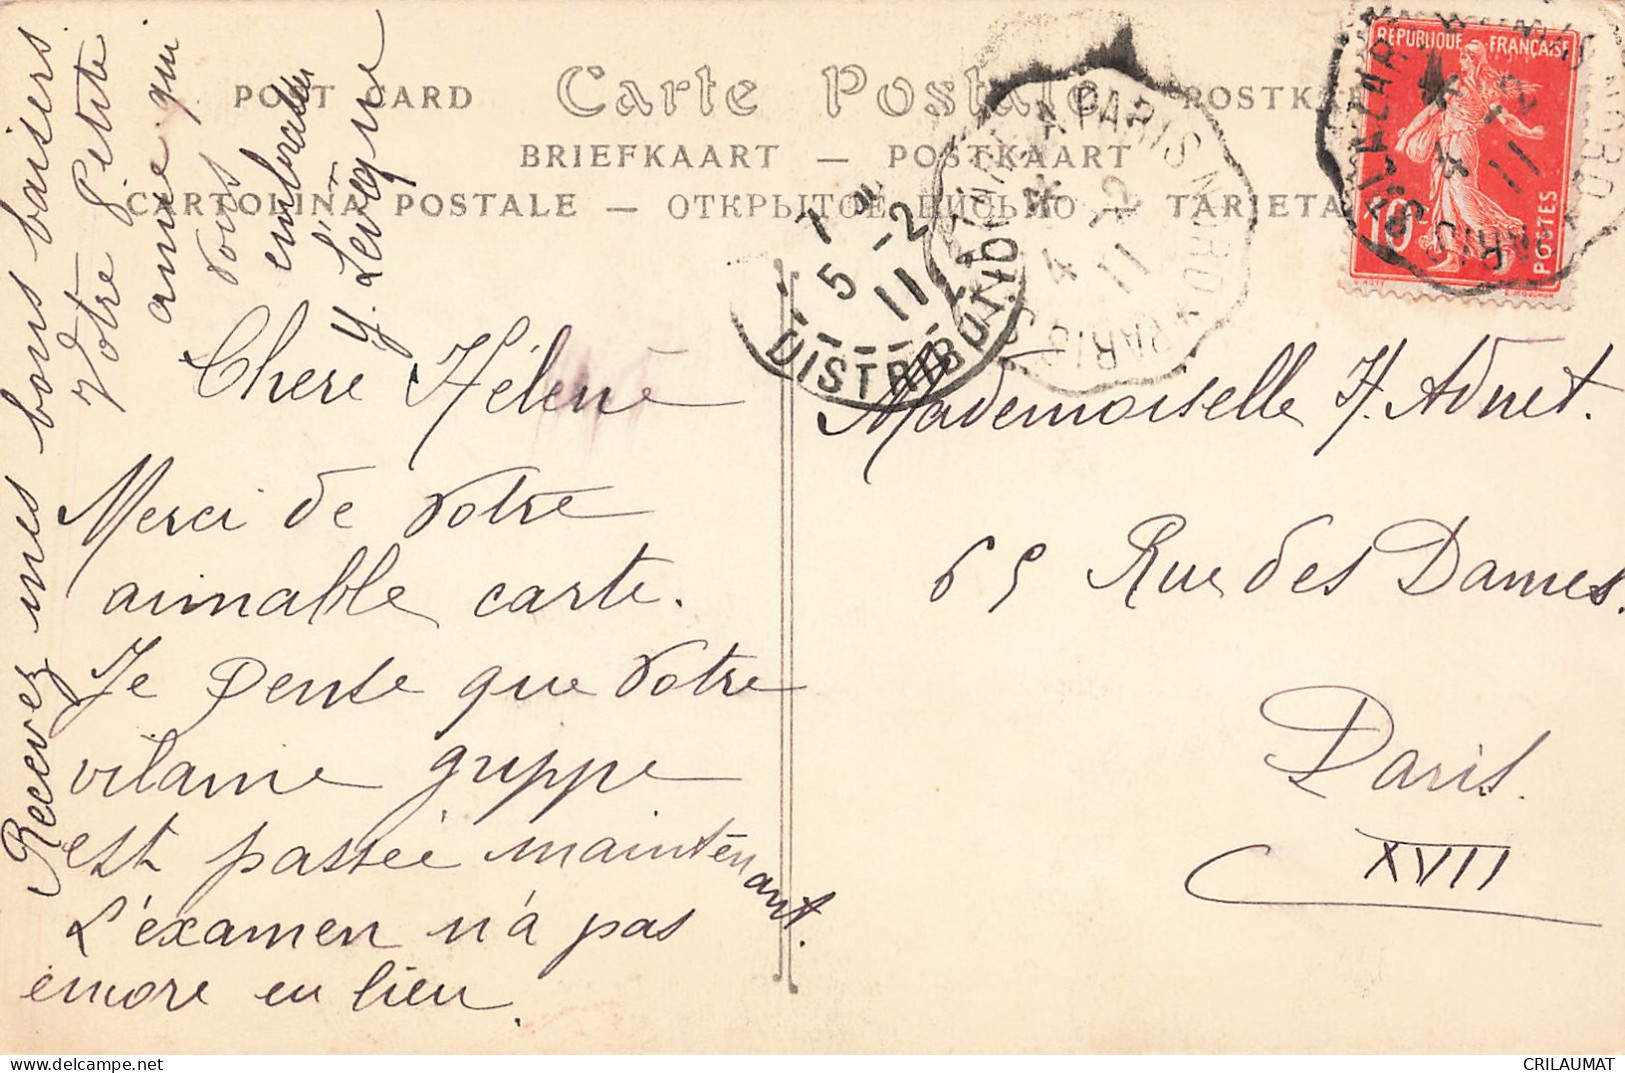 POST CARD Carte Postale POSTK
BRIEFKAART — POSTKAART
CARTOLINA POSTALE — ОТКРЫТОЕ ПИСЬМО — TARJETA
RÉPUBLIQUE FRANÇAISE
10
POSTES
A PARIS NORD
4 -2
11
PARIS
7
5 -2
11
DISTRIBUTION
Chère Hélène
Merci de votre
aimable carte.
Je pense que votre
vilaine grippe
est passée maintenant.
L'examen n'a pas
encore eu lieu.
Recevez mes bons baisers
Votre petite
amie qui
vous
embrasse
Y. Levêque
Mademoiselle H. Adnet.
65 Rue des Dames.
Paris.
XVII
CRILAUMAT